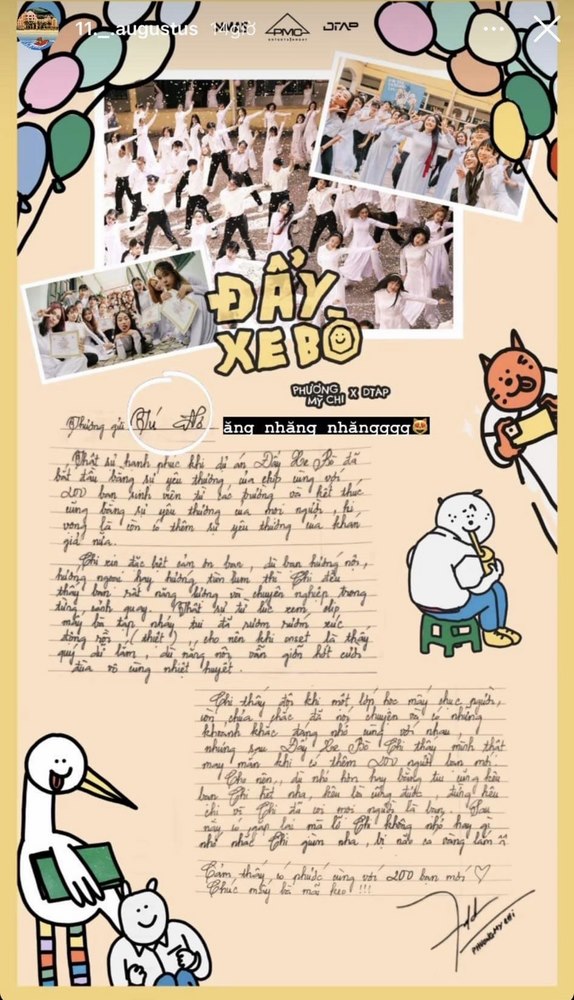 11._.augustus 14giờ
PMC
ENTERTAINMENT
DTAP
ĐẨY
XE BÒ
PHƯƠNG
MỸ CHI X DTAP
Thương gửi Tú Nơ
ăng nhăng nhăngggg
Thật sự hạnh phúc khi dự án Đẩy Xe Bò đã
bắt đầu bằng sự yêu thương của ekip cùng với
200 bạn sinh viên từ các trường và kết thúc
cũng bằng sự yêu thương của mọi người, hi
vọng là còn có thêm sự yêu thương của khán
giả nữa.
Chi xin đặc biệt cảm ơn bạn, dù bạn hướng nội,
hướng ngoại hay hướng tùm lum thì Chi đều
thấy bạn rất năng lượng và chuyên nghiệp trong
từng cảnh quay. Thật sự từ lúc xem clip
mấy bà tập nhảy tui đã rươm rướm xúc
động rồi, (thiệt),, cho nên khi onset là thấy
quý dữ lắm, dù nắng nôi vẫn giỡn hớt cười
đùa vô cùng nhiệt huyết.
Chi thấy đôi khi một lớp học mấy chục người,
còn chưa chắc đã nói chuyện và có những
khoảnh khắc đáng nhớ cùng với nhau,
nhưng sau Đẩy Xe Bò Chi thấy mình thật
may mắn khi có thêm 200 người bạn mới.
Cho nên,, dù nhỏ hơn hay bằng tui cũng kêu
bạn Chi hết nha, kêu bà cũng được, đừng kêu
chị vì Chi đã coi mọi người là bạn. Sau
này có gặp lại mà lỡ Chi không nhớ hay gì
nhớ nhắc Chi giùm nha, bị não cá vàng lắm
Cảm thấy có phước cùng với 200 bạn mới ♡
Chúc mấy bà mãi keo !!!
PHƯƠNG MỸ CHI